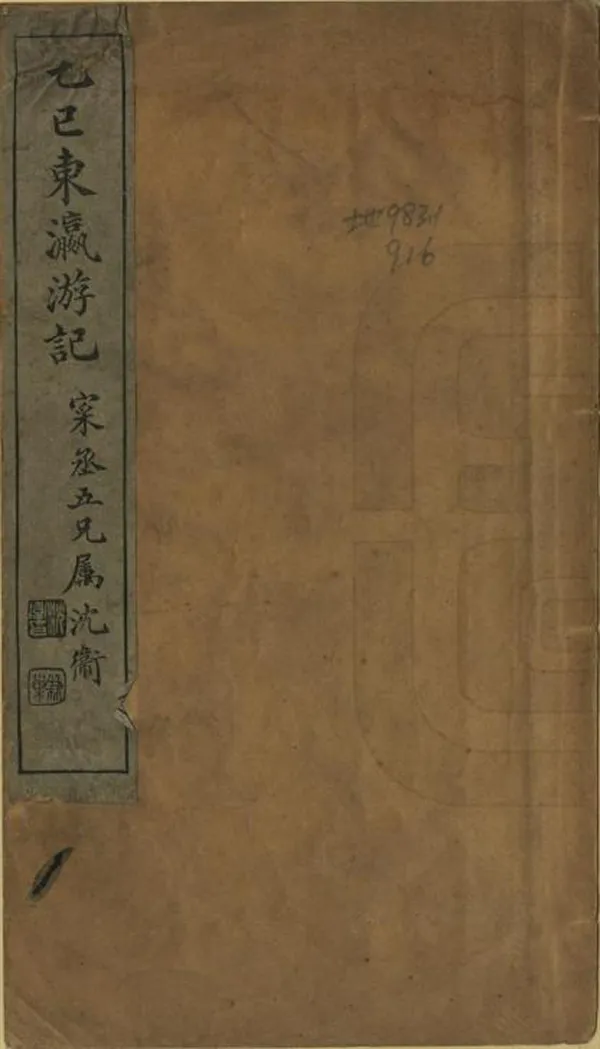 乙巳東瀛游記
寀丞五兄属沈衞
地983·1
916